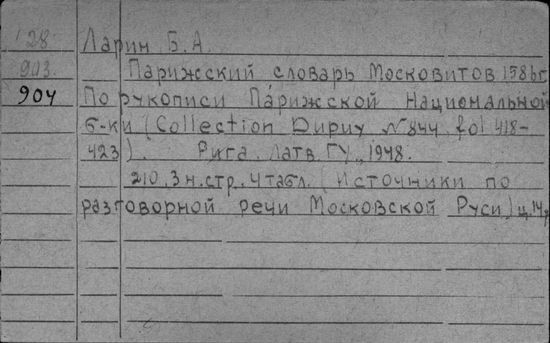 128 Ларин Б.А.
903 Парижский словарь Московитов 1586 г.
904 По рукописи Парижской национальной
б-ки (Collection Dupuy № 844 fol 418-
423). Рига. Латв. ГУ, 1948.
210, 3 н.стр. 4 табл. (Источники по
разговорной речи Московской Руси) ц. 14 р